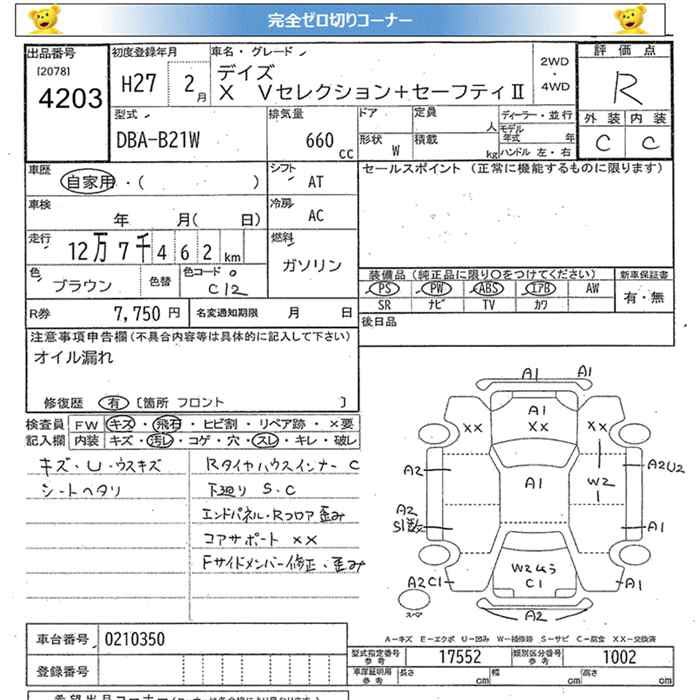 完全ゼロ切りコーナー
出品番号 初度登録年月 車名・グレード 2WD・4WD 評価点
[2078] 4203 H27 2月 デイズ
X Vセレクション+セーフティⅡ R
型式 排気量 ドア 定員 人 ディーラー・並行 外装 内装
DBA-B21W 660cc 形状 W 積載 kg モデル年式 年 ハンドル 左・右 C C
車歴 自家用・( ) シフト AT セールスポイント (正常に機能するものに限ります)
車検 年 月( 日) 冷房 AC
走行 12万7千462km 燃料 ガソリン
装備品 (純正品に限り○をつけてください) 新車保証書
色 ブラウン 色替 色コード C12 PS PW ABS エアB AW 有・無
SR ナビ TV カワ
R券 7,750円 名変通知期限 月 日 後日品
注意事項申告欄(不具合内容等は具体的に記入して下さい)
オイル漏れ
修復歴 有 [箇所 フロント ]
検査員 FW キズ・飛石・ヒビ割・リペア跡・×要
記入欄 内装 キズ・汚レ・コゲ・穴・スレ・キレ・破レ
キズ・U・ウスキズ Rタイヤハウスインナー C
シートヘタリ 下廻り S・C
エンドパネル・Rフロア歪み
コアサポート ××
Fサイドメンバー修正・歪み
A1 A1
A1
×× ×× ××
A2 A1 W2 A2U2
A2
S1 A1
W2ムラ
C1
A2C1 A1
スペア A2
A-キズ E-エクボ U-凹み W-補修跡 S-サビ C-腐食 XX-交換済
車台番号 0210350 型式指定番号 参考 17552 類別区分番号 参考 1002
登録番号 車庫証明用 参考 長さ cm 幅 cm 高さ cm
希望出品コーナー